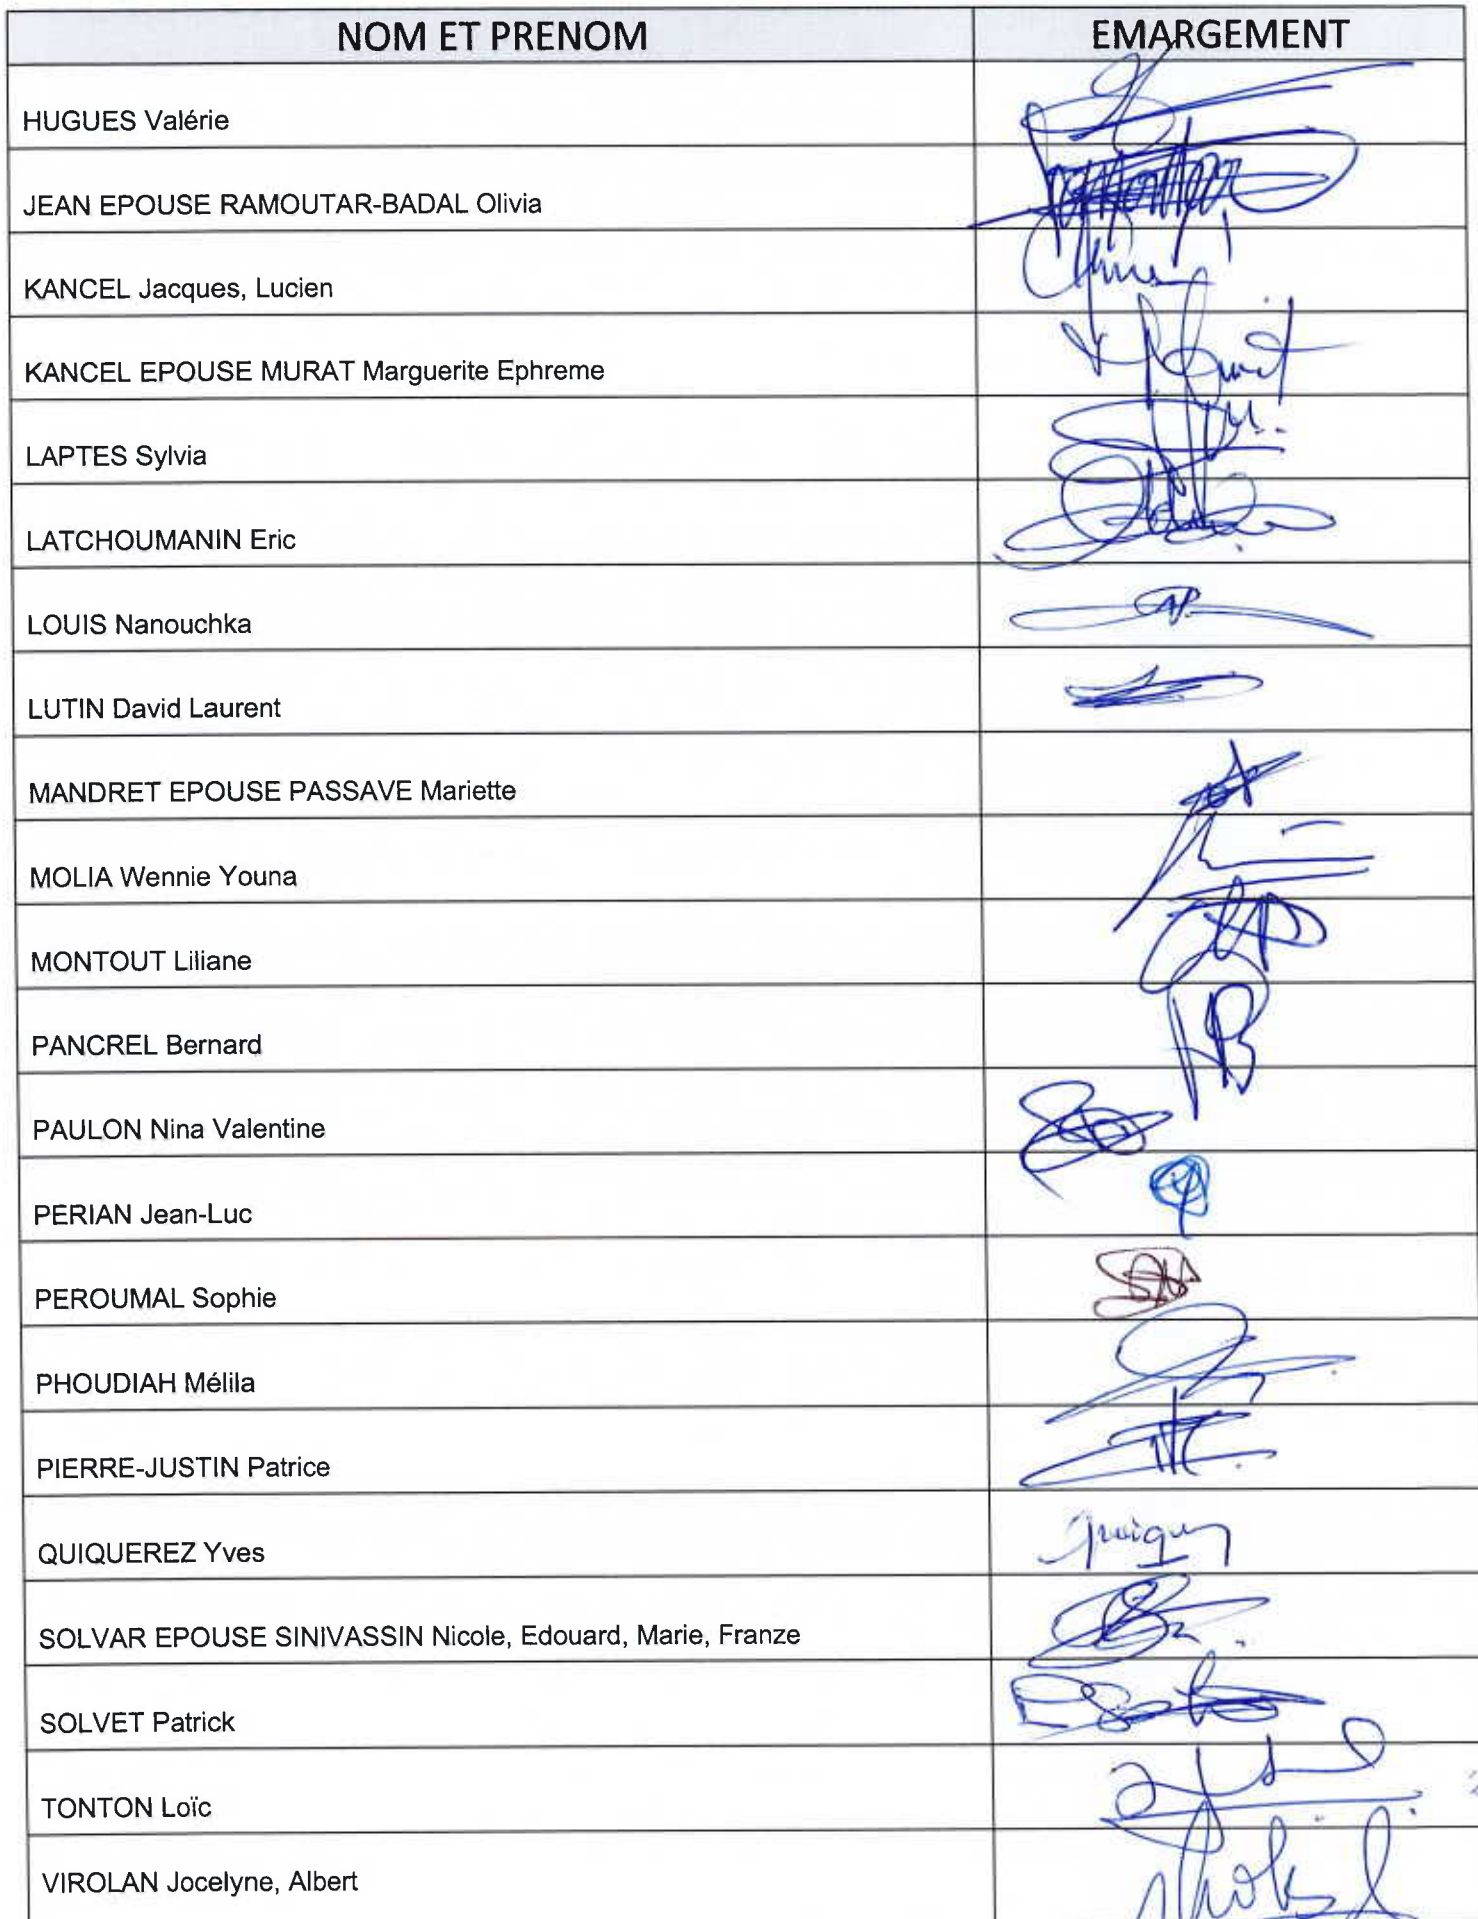 NOM ET PRENOM EMARGEMENT
HUGUES Valérie
JEAN EPOUSE RAMOUTAR-BADAL Olivia
KANCEL Jacques, Lucien
KANCEL EPOUSE MURAT Marguerite Ephreme
LAPTES Sylvia
LATCHOUMANIN Eric
LOUIS Nanouchka
LUTIN David Laurent
MANDRET EPOUSE PASSAVE Mariette
MOLIA Wennie Youna
MONTOUT Liliane
PANCREL Bernard
PAULON Nina Valentine
PERIAN Jean-Luc
PEROUMAL Sophie
PHOUDIAH Mélila
PIERRE-JUSTIN Patrice
QUIQUEREZ Yves
SOLVAR EPOUSE SINIVASSIN Nicole, Edouard, Marie, Franze
SOLVET Patrick
TONTON Loïc
VIROLAN Jocelyne, Albert